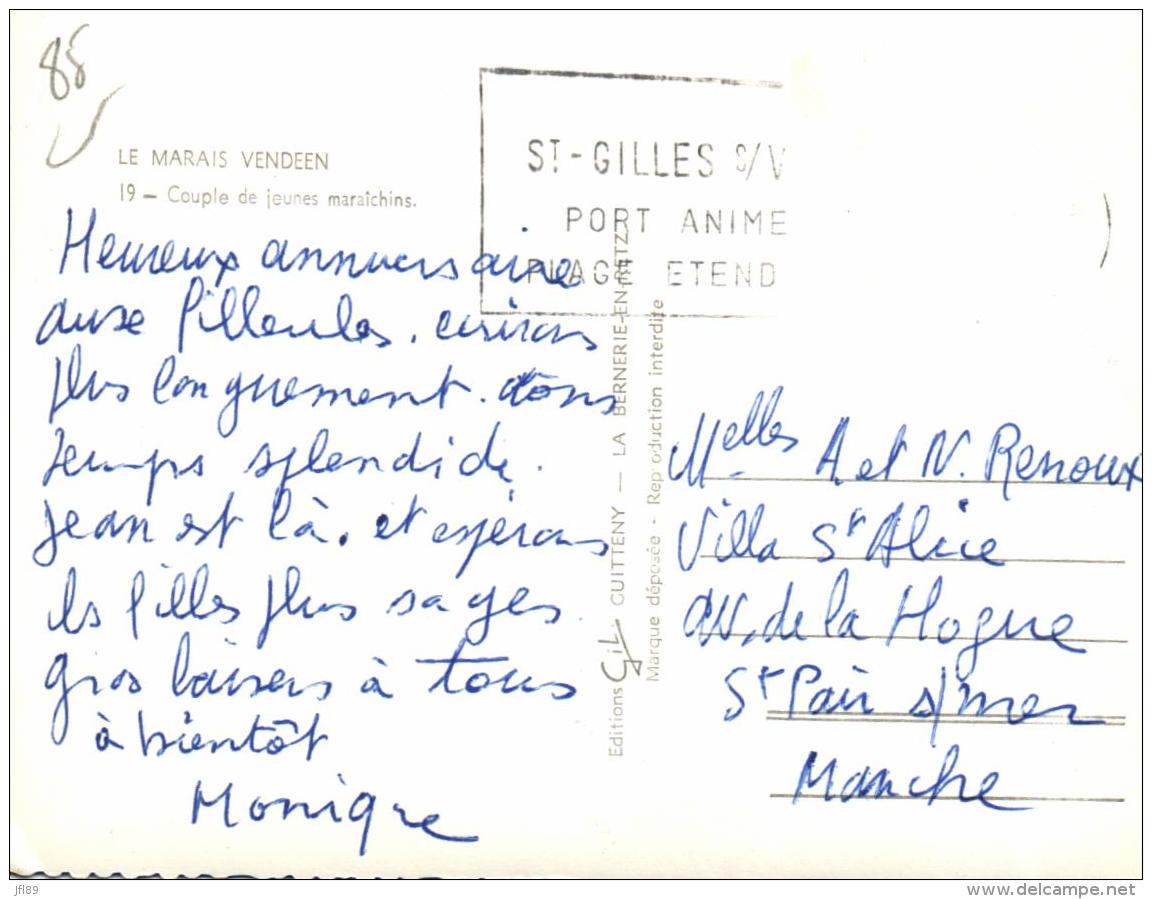 85
LE MARAIS VENDEEN
19 – Couple de jeunes maraîchins.
ST-GILLES S/V
PORT ANIME
PLAGE ETEND
Heureux anniversaire
aux filleules. écrirons
plus longuement. avons
temps splendide.
Jean est là. et espérons
les filles plus sages
gros baisers à tous
à bientôt
Monique
Editions GUITTENY — LA BERNERIE-EN-RETZ
Marque déposée - Reproduction interdite
Melles A et N. Renoux
Villa St Alice
av. de la Hogue
St Pair s/mer
Manche
jfl89
www.delcampe.net